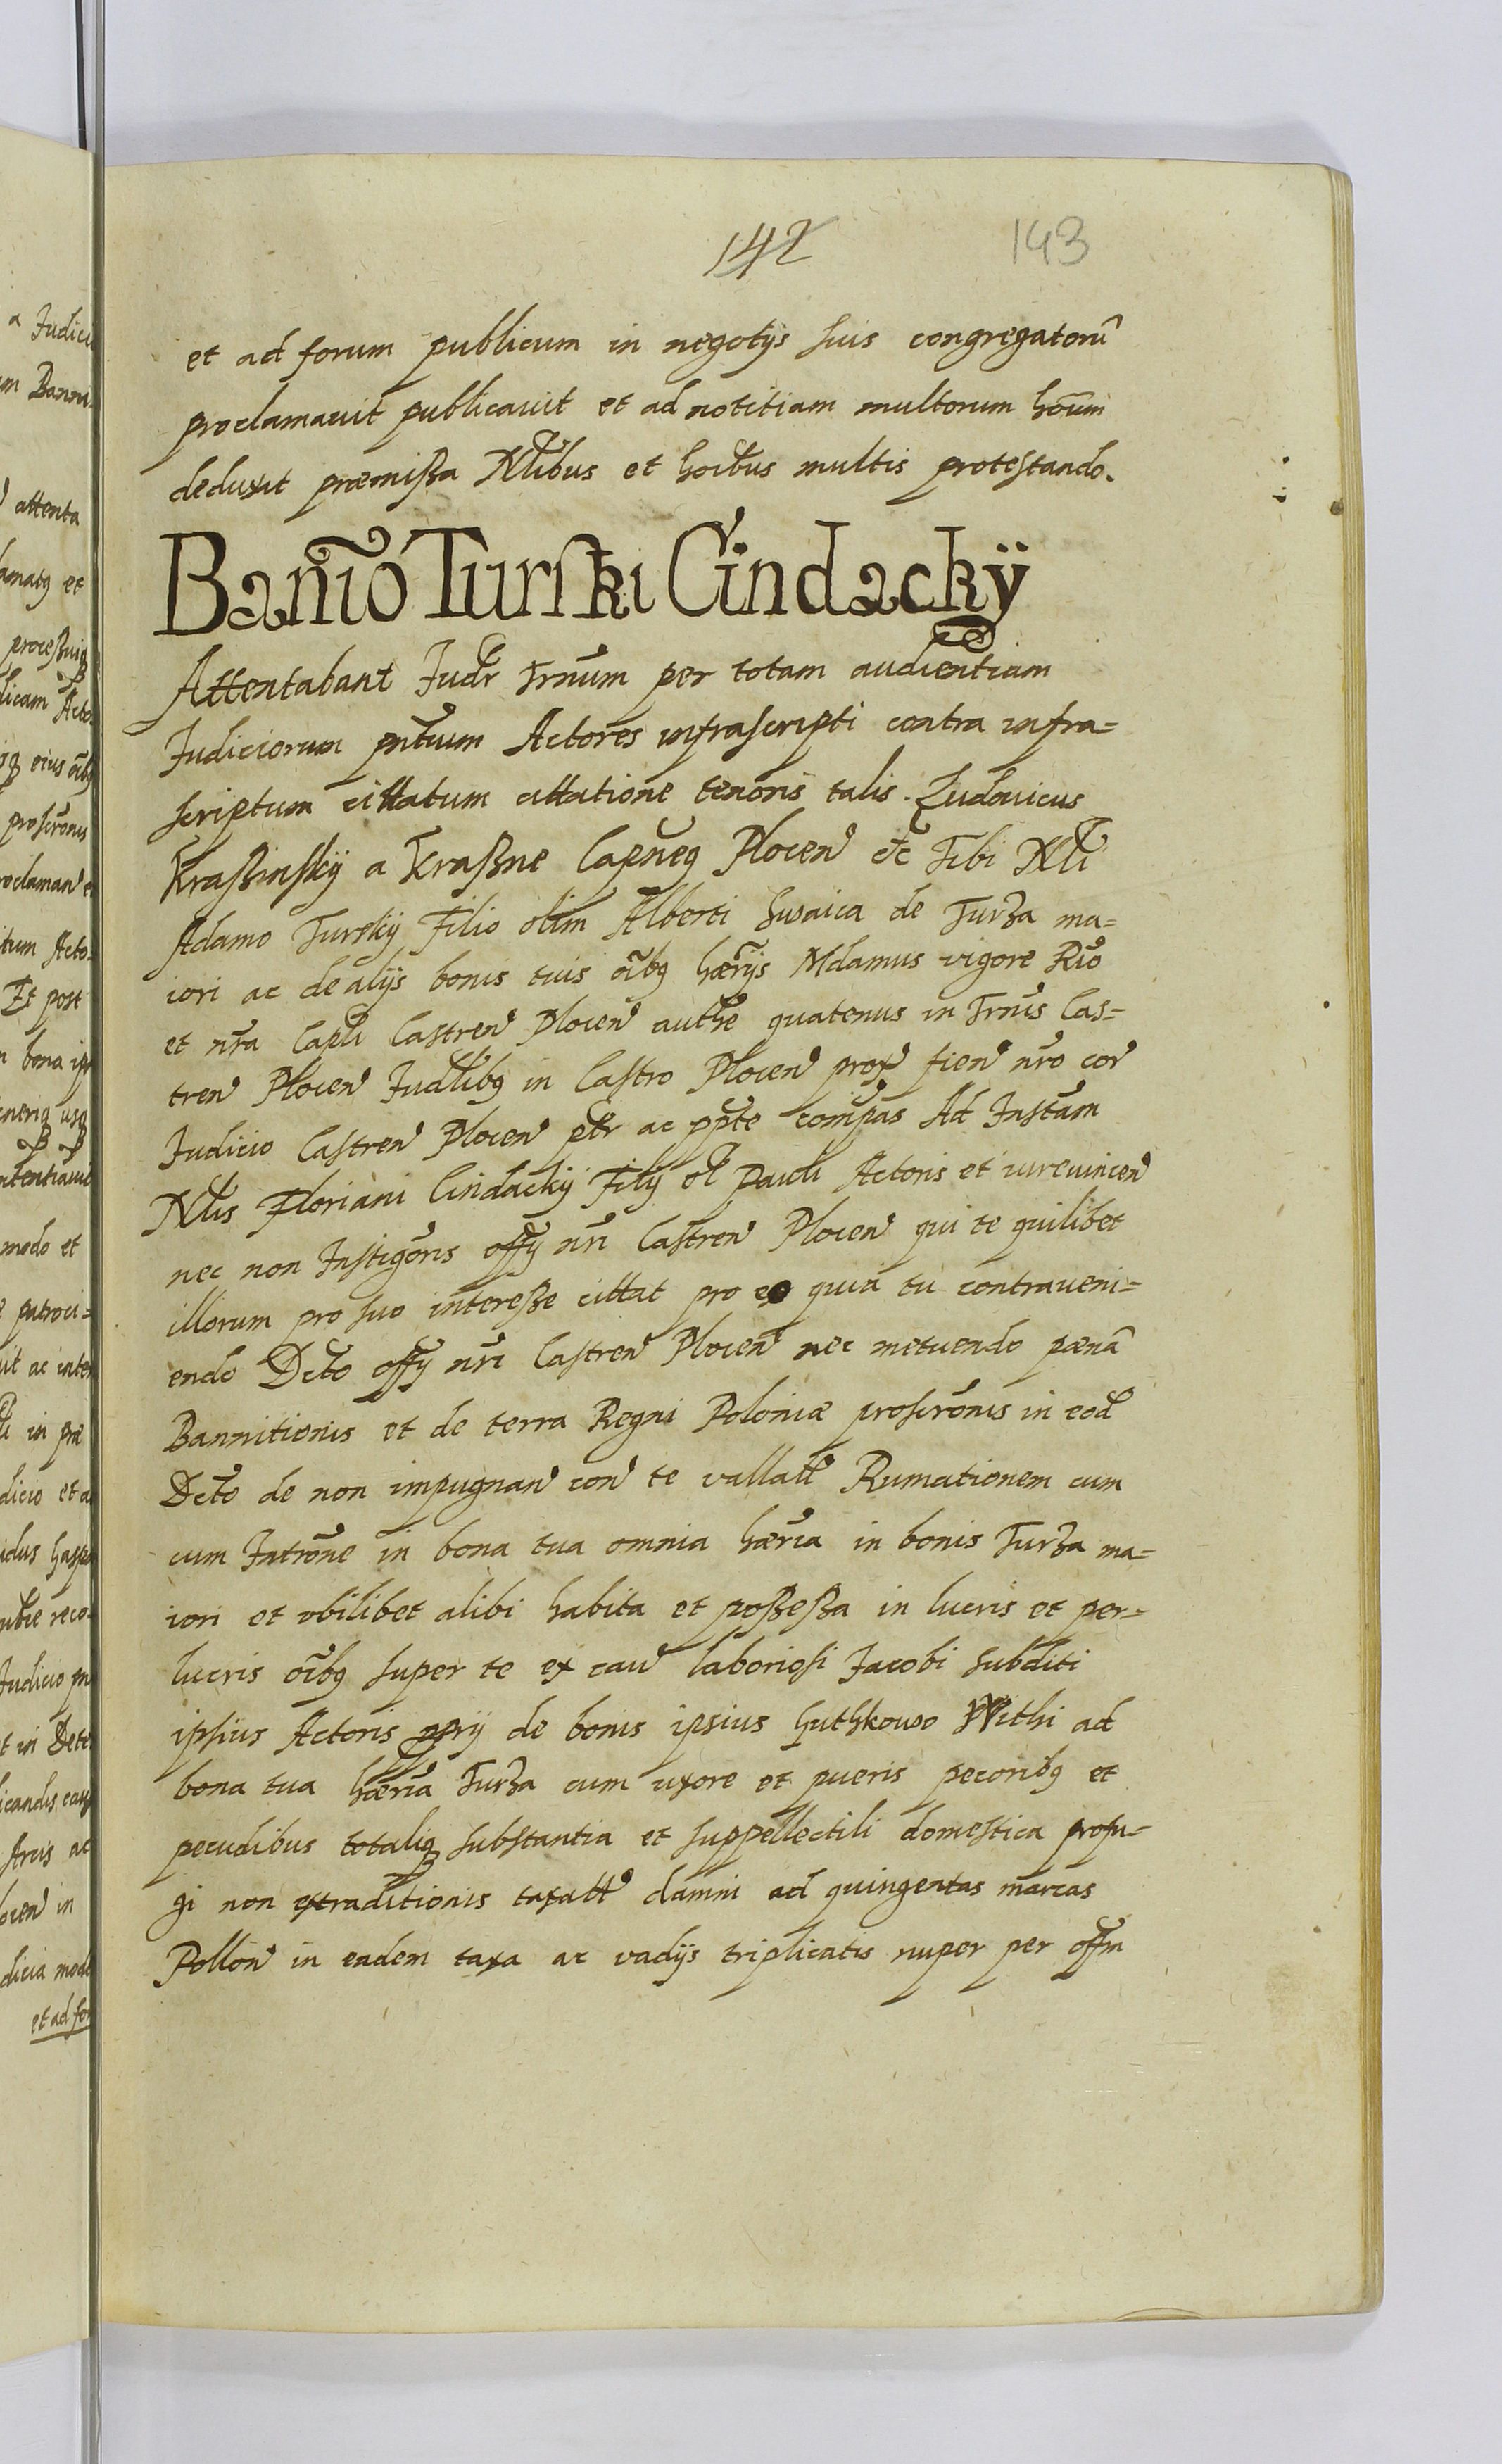 142 143
et ad forum publicum in negotijs suis congregatorũ
proclamauit publicauit et ad notitiam multorum hoĩum
deduxit præmissa Nlibus et hoibus multis protestando.
Bannio Turski Cindackÿ
Attentabant Judr Trnum per totam audientiam
Judiciorum pntium Actores infrascripti contra infra=
scriptum cittatum cittatione tenoris talis. Ludouicus
Krassinskÿ a Krassne Capneq Plocen etc Tibi Nli
Adamo Turskÿ Filio olim Alberti Swaica de Turza ma=
iori ac de alijs bonis tuis oibq hærijs Mdamus vigore Rio
et nra Capli Castren Plocen authe quatenus in Trnis Cas=
tren Plocen Judlibq in Castro Plocen prox fien nro cor
Judicio Castren Plocen ptr ac ppte compas Ad Instam
Nlis Floriani Cindackÿ Filÿ ol Pauli Actoris et iureuincen
nec non Instigoris offÿ nri Castren Plocen qui te quilibet
illorum pro suo interesse cittat pro eo quia tu contraueni=
endo Dcto offÿ nri Castren Plocen nec metuendo pænã
Bannitionis et de terra Regni Poloniæ proscronis in eod
Dcto de non impugnan con te vallatt Rumationem cum
cum Introne in bona tua omnia hæria in bonis Turza ma=
iori et vbilibet alibi habita et possessa in lucris et per=
lucris oibq super te ex cau laboriosi Jacobi subditi
ipsius Actoris pprij de bonis ipsius Guthkowo Withi ad
bona tua hæria Turza cum uxore et pueris pecoribq et
pecudibus totaliq substantia et suppellectili domestica profu=
gi non extraditionis taxatt damni ad quingentas marcas
Pollon in eadem taxa ac vadijs triplicatis nuper per offm